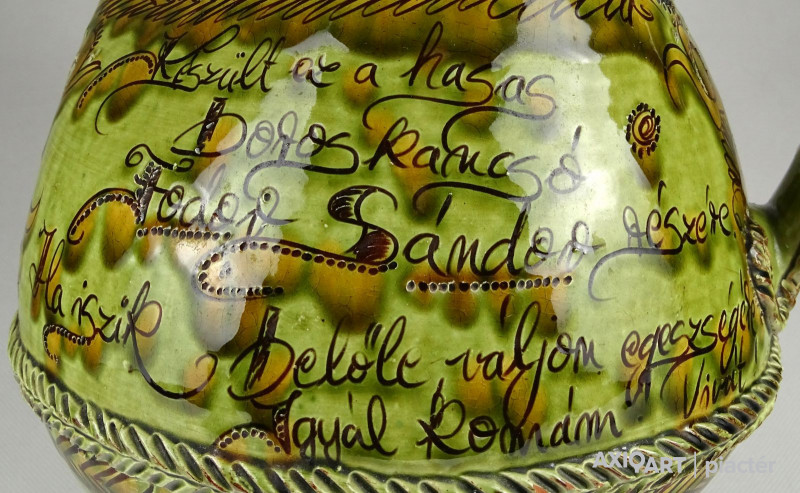 Készült az a hasas
boros kancsó
Fodor Sándor részére.
Ha iszik Belőle váljon egeszségé
Vivát
Igyál Komám
AXIOART | piactér